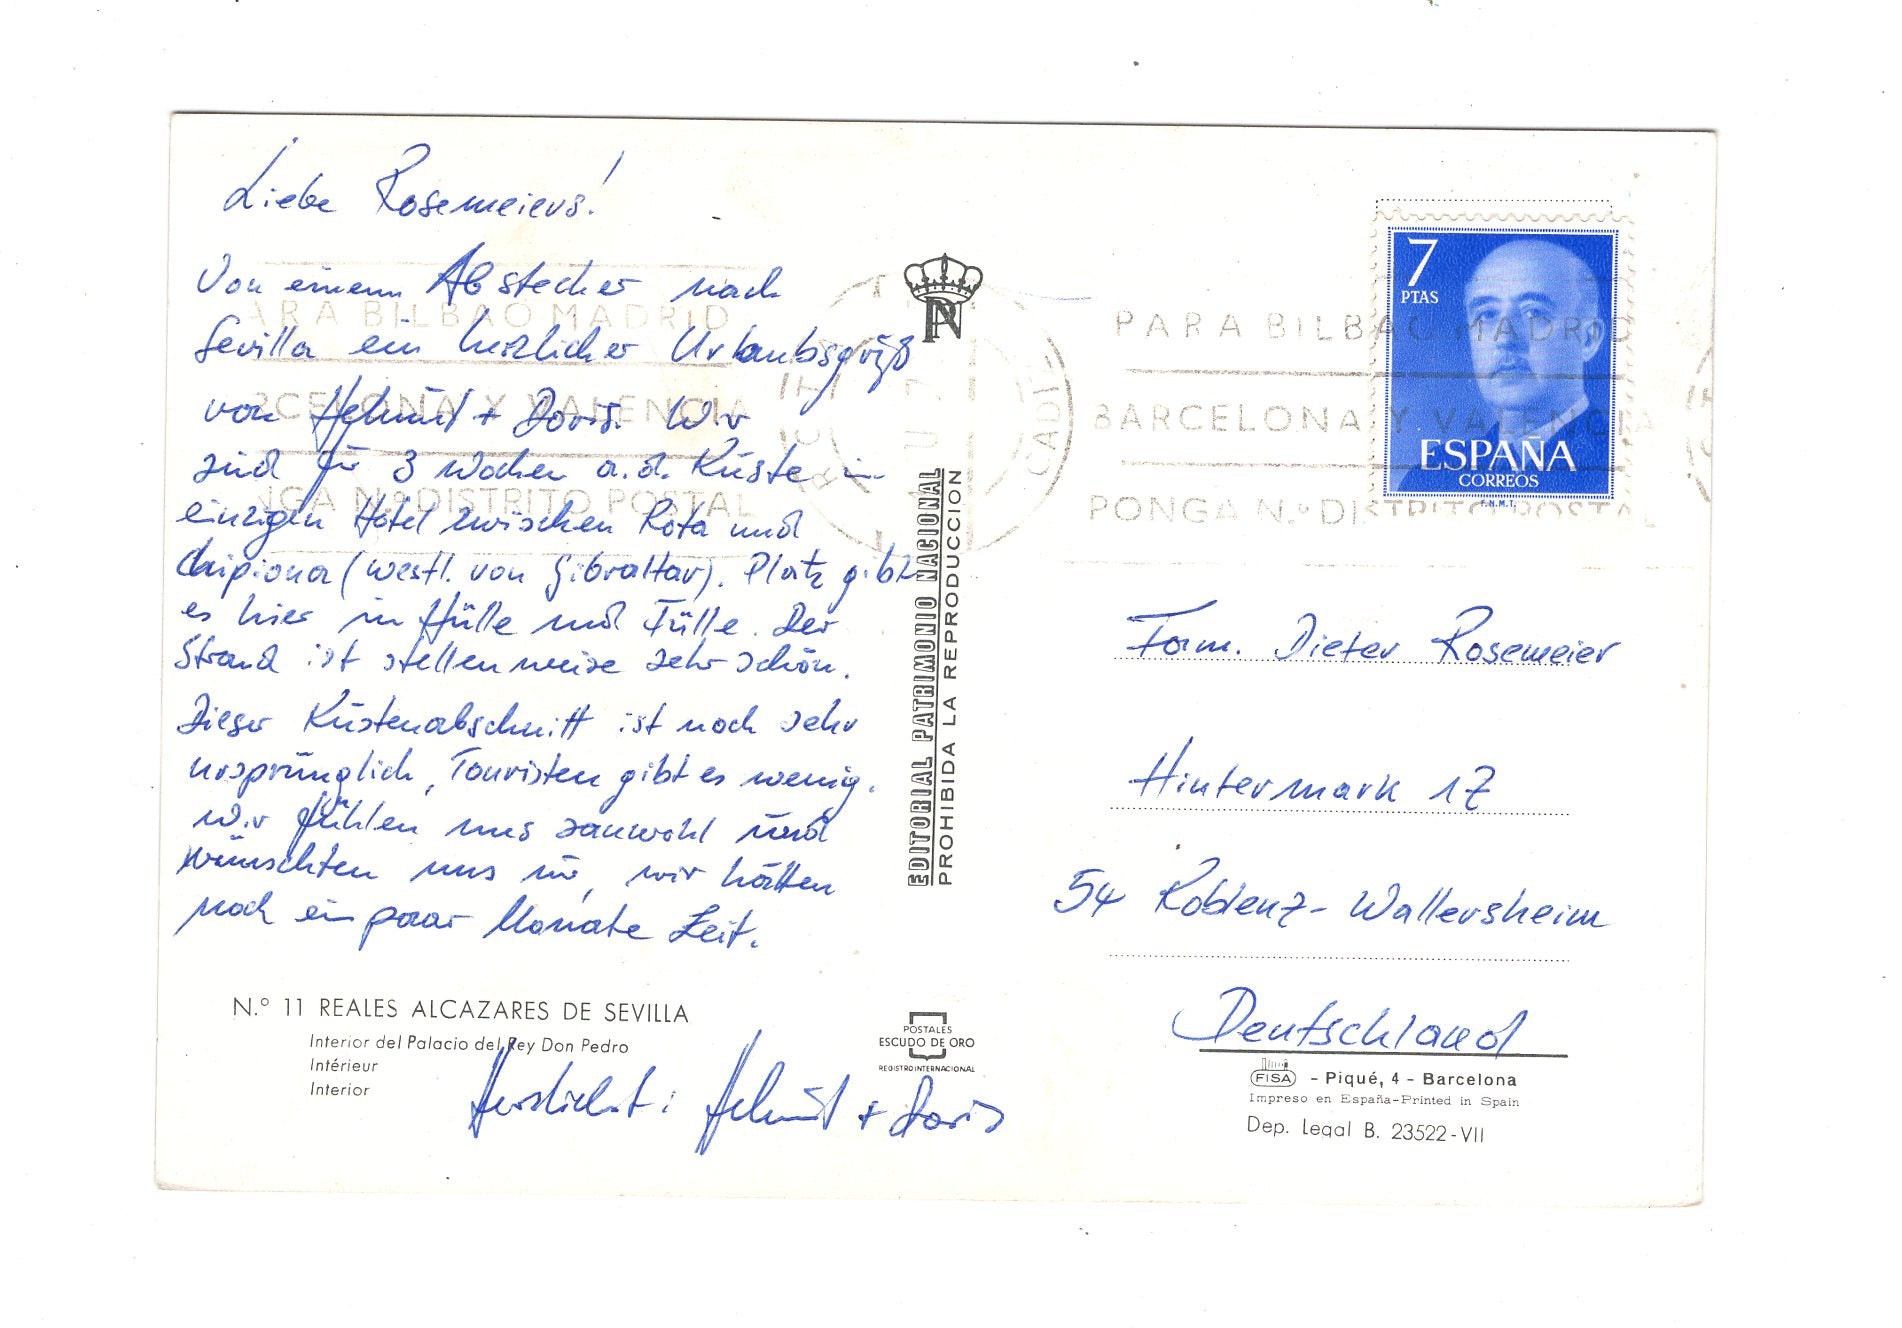 Liebe Rosemeiers!
Von einem Abstecher nach
Sevilla ein herzlicher Urlaubsgruß
von Helmut + Doris. Wir
sind für 3 Wochen a.d. Küste im
einzigen Hotel zwischen Rota und
Chipiona (westl. von Gibraltar). Platz gibt
es hier in Hülle und Fülle. Der
Strand ist stellenweise sehr schön.
Dieser Küstenabschnitt ist noch sehr
ursprünglich, Touristen gibt es wenig.
Wir fühlen uns sauwohl und
wünschten uns nur, wir hätten
noch ein paar Monate Zeit.
Herzlichst: Helmut + Doris
N.º 11 REALES ALCAZARES DE SEVILLA
Interior del Palacio del Rey Don Pedro
Intérieur
Interior
PN
EDITORIAL PATRIMONIO NACIONAL
PROHIBIDA LA REPRODUCCION
POSTALES
ESCUDO DE ORO
REGISTRO INTERNACIONAL
7
PTAS
ESPAÑA
CORREOS
F.N.M.T.
PARA BILBAO MADRID
BARCELONA Y VALENCIA
PONGA N.º DISTRITO POSTAL
ARA BILBAO MADRID
RCELONA Y VALENCIA
NGA N.º DISTRITO POSTAL
CADIZ
Fam. Dieter Rosemeier
Hintermark 17
54 Koblenz-Wallersheim
Deutschland
FISA - Piqué, 4 - Barcelona
Impreso en España-Printed in Spain
Dep. Legal B. 23522-VII